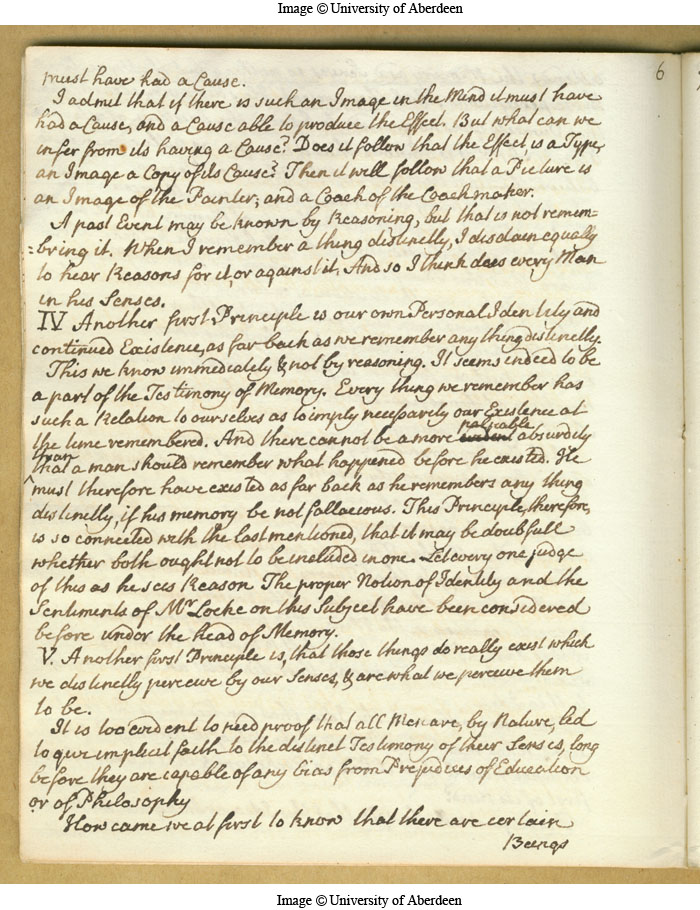 Image © University of Aberdeen
6
must have had a Cause.
I admit that if there is such an Image in the Mind it must have
had a Cause, and a Cause able to produce the Effect. But what can we
infer from its having a Cause? Does it follow that the Effect, is a Type,
an Image a Copy of its Cause? Then it will follow that a Picture is
an Image of the Painter; and a Coach of the Coachmaker.
A past Event may be known by Reasoning, but that is not remem=
=bring it. When I remember a thing distinctly, I disdain equally
to hear Reasons for it, or against it. And so I think does every Man
in his Senses.
IV Another first Principle is our own Personal Identity and
continued Existence, as far back as we remember any thing distinctly.
This we know immediately & not by reasoning. It seems indeed to be
a part of the Testimony of Memory. Every thing we remember has
such a Relation to ourselves as to imply necessarily our Existence at
palpable
the time remembered. And there cannot be a more evident absurdity
than
that a man should remember what happened before he existed. He
must therefore have existed as far back as he remembers any thing
distinctly, if his memory be not fallacious. This Principle, therefore,
is so connected with the last mentioned, that it may be doubtfull
whether both ought not to be included in one. Let every one judge
of this as he sees Reason The proper Notion of Identity and the
Sentiments of Mr Locke on this Subject have been considered
before under the head of Memory.
V. Another first Principle is, that those things do really exist which
we distinctly perceive by our Senses, & are what we perceive them
to be.
It is too evident to need proof that all Men are, by Nature, led
to give implicit faith to the distinct Testimony of their Senses, long
before they are capable of any bias from Prejudices of Education
or of Philosophy
How came we at first to know that there are certain
Beings
Image © University of Aberdeen